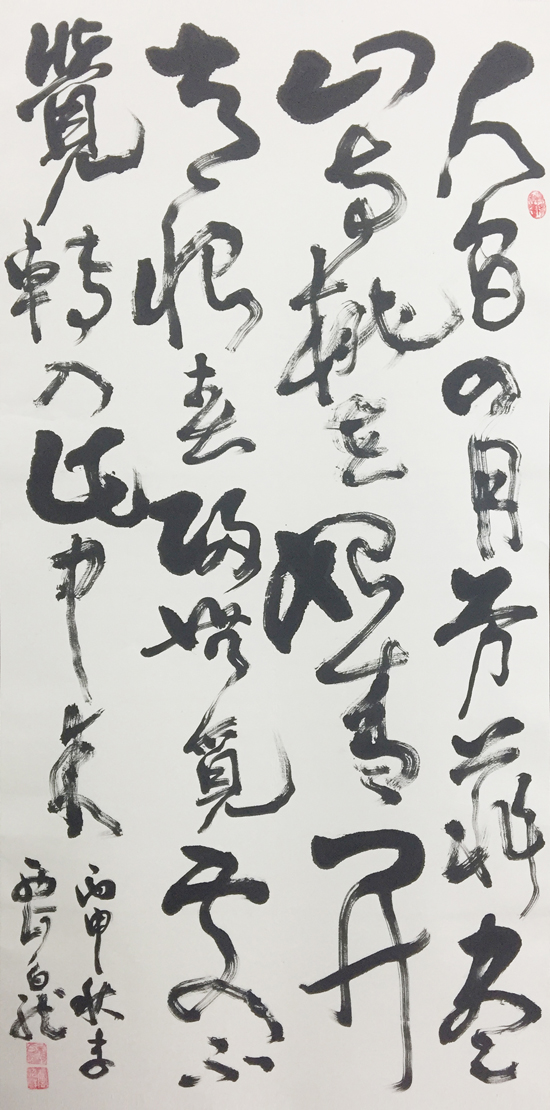 人間四月芳菲盡
山寺桃花始盛開
長恨春歸無覓處不
覺轉入此中來
丙申秋
白龍